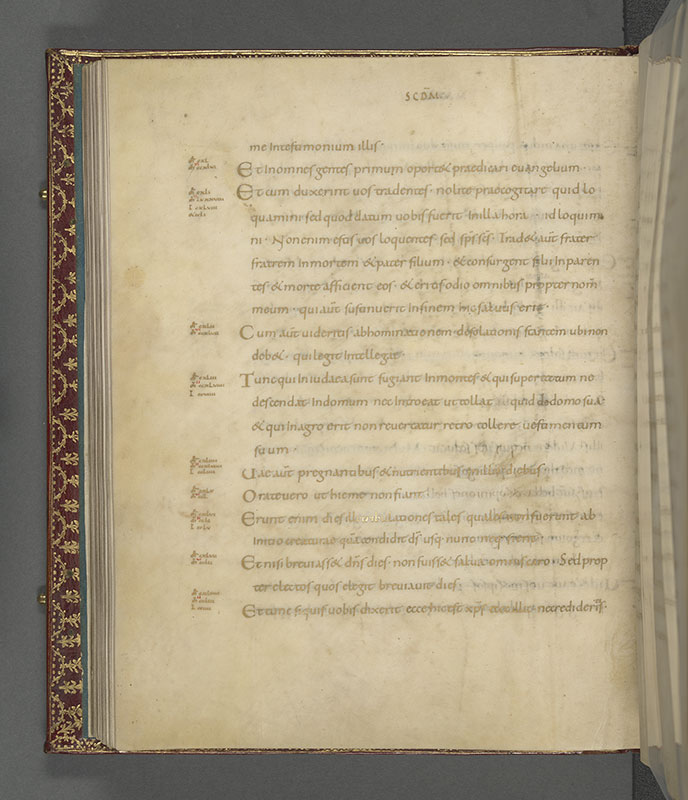 SCDM
me Intestimonium illis·
Et Inomnes gentes primum oport& praedicari euangelium·
Et cum duxerint uos tradentes· nolite praecogitare quid lo
quamini sed quod datum uobis fuerit Inilla hora id loquim
ni· Non enim estis uos loquentes· sed sp̄s sc̄s· Trad& aut̄ frater
fratrem Inmortem &pater filium· &consurgent filii Inparen
tes &morte afficient eos· &eritis odio omnibus propter nom̄
meum· qui aut̄ sustinuerit Infinem hic saluus erit·
Cum aut̄ uideritis abhominationem desolationis stantem ubi non
deb&· qui legit Intellegat
Tunc qui In iudaea sunt fugiant Inmontes &qui super tectum ne
descendat Indomum nec Introeat ut tollat quid de domo sua·
&qui Inagro erit non reuertatur retro tollere uestimentum
suum·
Uae aut̄ pregnantibus &nutrientibus Inillis diebus·
Orate uero ut hieme non fiant
Erunt enim dies ill lationes tales quales non fuerunt ab
Initio creaturae quā condidit d̄s usq nunc neq fient·
Et nisi breuiass& dn̄s dies non fuiss& salua omnis caro· Sed prop
ter electos quos elegit breuiauit dies·
Et tunc siquis uobis dixerit ecce hic est xp̄s ecce illic ne credideritis·